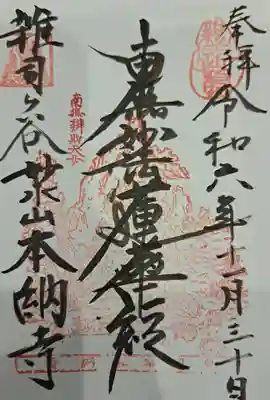 奉拝 令和六年十一月三十日
南無妙法蓮華経
雑司ヶ谷 山本納寺